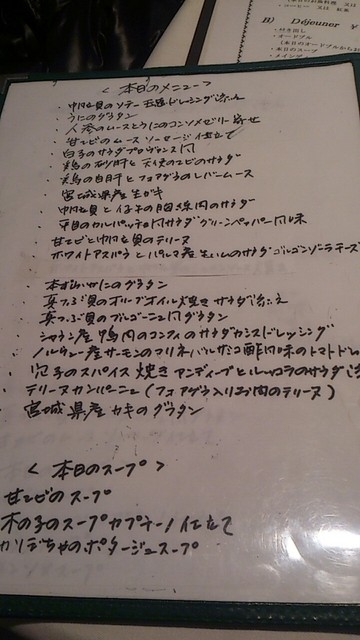 コーヒー 又は 紅茶
B) Déjeuner ¥
・付き出し
・オードブル
(本日のオードブルからお
・本日のスープ
・メイン
< 本日のメニュー >
・帆立貝のソテー ドレッシング添え
・うにのグラタン
・人参のムースとうにのコンソメゼリー寄せ
・甘エビのムース ソーセージ仕立て
・白子のサラダプロヴァンス風
・鶏の砂肝と天使のエビのサラダ
・鶏の白肝とフォアグラのレバームース
・宮城県産生ガキ
・帆立貝と仔牛の胸腺肉のサラダ
・平目のカルパッチョ風サラダ グリーンペッパー風味
・甘エビと帆立貝のテリーヌ
・ホワイトアスパラとパルマ産生ハムのサラダゴルゴンゾーラチーズ
・本ずわいがにのグラタン
・真つぶ貝のオリーブオイル焼きサラダ添え
・真つぶ貝のブルゴーニュ風グラタン
・シャラン産鴨肉のコンフィのサラダカシスドレッシング
・ノルウェー産サーモンのマリネバルサミコ酢風味のトマトドレ
・穴子のスパイス焼き アンディーブとルッコラのサラダ添
・テリーヌカンパーニュ (フォアグラ入りお肉のテリーヌ)
・宮城県産カキのグラタン
< 本日のスープ >
甘エビのスープ
木の子のスープカプチーノ仕立て
かぼちゃのポタージュスープ